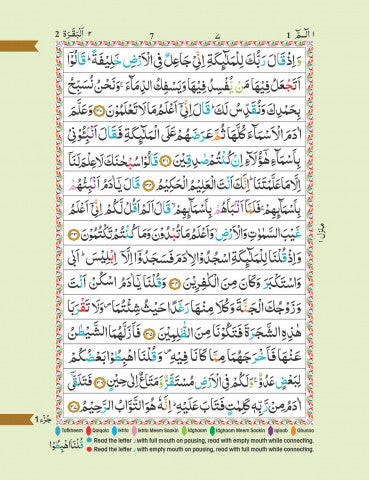 البقرة ٢ 2
7
٧
الٓمّٓ ١ 1
وَاِذْ قَالَ رَبُّكَ لِلْمَلٰٓئِكَةِ اِنِّیْ جَاعِلٌ فِی الْاَرْضِ خَلِیْفَةً ؕ قَالُوْۤا
اَتَجْعَلُ فِیْهَا مَنْ یُّفْسِدُ فِیْهَا وَیَسْفِكُ الدِّمَآءَ ۚ وَنَحْنُ نُسَبِّحُ
بِحَمْدِكَ وَنُقَدِّسُ لَكَ ؕ قَالَ اِنِّیْۤ اَعْلَمُ مَا لَا تَعْلَمُوْنَ ﴿۳۰﴾ وَعَلَّمَ
اٰدَمَ الْاَسْمَآءَ كُلَّهَا ثُمَّ عَرَضَهُمْ عَلَی الْمَلٰٓئِكَةِ ۙ فَقَالَ اَنْۢبِـُٔوْنِیْ
بِاَسْمَآءِ هٰۤؤُلَآءِ اِنْ كُنْتُمْ صٰدِقِیْنَ ﴿۳۱﴾ قَالُوْا سُبْحٰنَكَ لَا عِلْمَ لَنَاۤ
اِلَّا مَا عَلَّمْتَنَا ؕ اِنَّكَ اَنْتَ الْعَلِیْمُ الْحَكِیْمُ ﴿۳۲﴾ قَالَ یٰۤاٰدَمُ اَنْۢبِئْهُمْ
بِاَسْمَآىِٕهِمْ ۚ فَلَمَّاۤ اَنْۢبَاَهُمْ بِاَسْمَآىِٕهِمْ ۙ قَالَ اَلَمْ اَقُلْ لَّكُمْ اِنِّیْۤ اَعْلَمُ
غَیْبَ السَّمٰوٰتِ وَالْاَرْضِ ۙ وَاَعْلَمُ مَا تُبْدُوْنَ وَمَا كُنْتُمْ تَكْتُمُوْنَ ﴿۳۳﴾
وَاِذْ قُلْنَا لِلْمَلٰٓئِكَةِ اسْجُدُوْا لِاٰدَمَ فَسَجَدُوْۤا اِلَّاۤ اِبْلِیْسَ ؕ اَبٰی
وَاسْتَكْبَرَ ٭ۗ وَكَانَ مِنَ الْكٰفِرِیْنَ ﴿۳۴﴾ وَقُلْنَا یٰۤاٰدَمُ اسْكُنْ اَنْتَ
وَزَوْجُكَ الْجَنَّةَ وَكُلَا مِنْهَا رَغَدًا حَیْثُ شِئْتُمَا ۪ وَلَا تَقْرَبَا
هٰذِهِ الشَّجَرَةَ فَتَكُوْنَا مِنَ الظّٰلِمِیْنَ ﴿۳۵﴾ فَاَزَلَّهُمَا الشَّیْطٰنُ
عَنْهَا فَاَخْرَجَهُمَا مِمَّا كَانَا فِیْهِ ۪ وَقُلْنَا اهْبِطُوْا بَعْضُكُمْ
لِبَعْضٍ عَدُوٌّ ۚ وَلَكُمْ فِی الْاَرْضِ مُسْتَقَرٌّ وَّمَتَاعٌ اِلٰی حِیْنٍ ﴿۳۶﴾ فَتَلَقّٰۤی
اٰدَمُ مِنْ رَّبِّهٖ كَلِمٰتٍ فَتَابَ عَلَیْهِ ؕ اِنَّهٗ هُوَ التَّوَّابُ الرَّحِیْمُ ﴿۳۷﴾
منزل ۱
جُزء ١ 1
Tafkheem Qalqala Ikhfa Ikhfa Meem Saakin Idghaam Idghaam Meem Saakin Iqlaab Ghunna
قُلْنَا اهْبِطُوْا
Read the letter ر with full mouth on pausing, read with empty mouth while connecting.
Read the letter ر with empty mouth on pausing, read with full mouth while connecting.